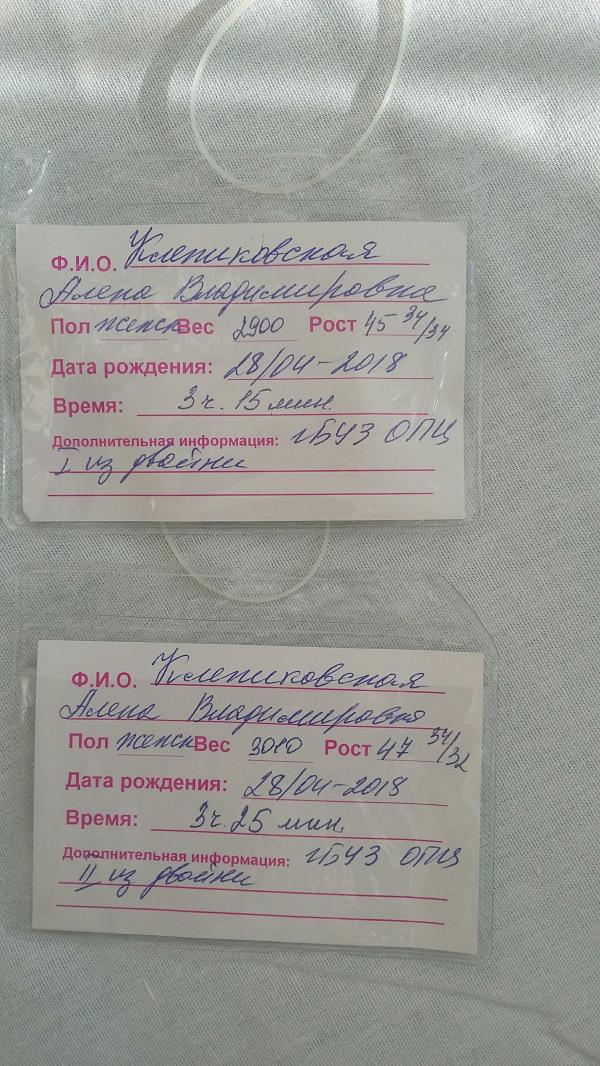 Ф.И.О. Клепиковская
Алена Владимировна
Пол женск Вес 2900 Рост 45 34/34
Дата рождения: 28/04-2018
Время: 3ч. 15 мин.
Дополнительная информация: ГБУЗ ОПЦ
I из двойни
Ф.И.О. Клепиковская
Алена Владимировна
Пол женск Вес 3010 Рост 47 34/32
Дата рождения: 28/04-2018
Время: 3ч. 25 мин.
Дополнительная информация: ГБУЗ ОПЦ
II из двойни